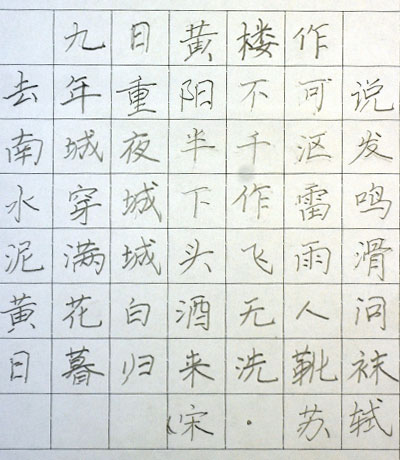 九日黄楼作
去年重阳不可说
南城夜半千沤发
水穿城下作雷鸣
泥满城头飞雨滑
黄花白酒无人问
日暮归来洗靴袜
(宋·苏轼